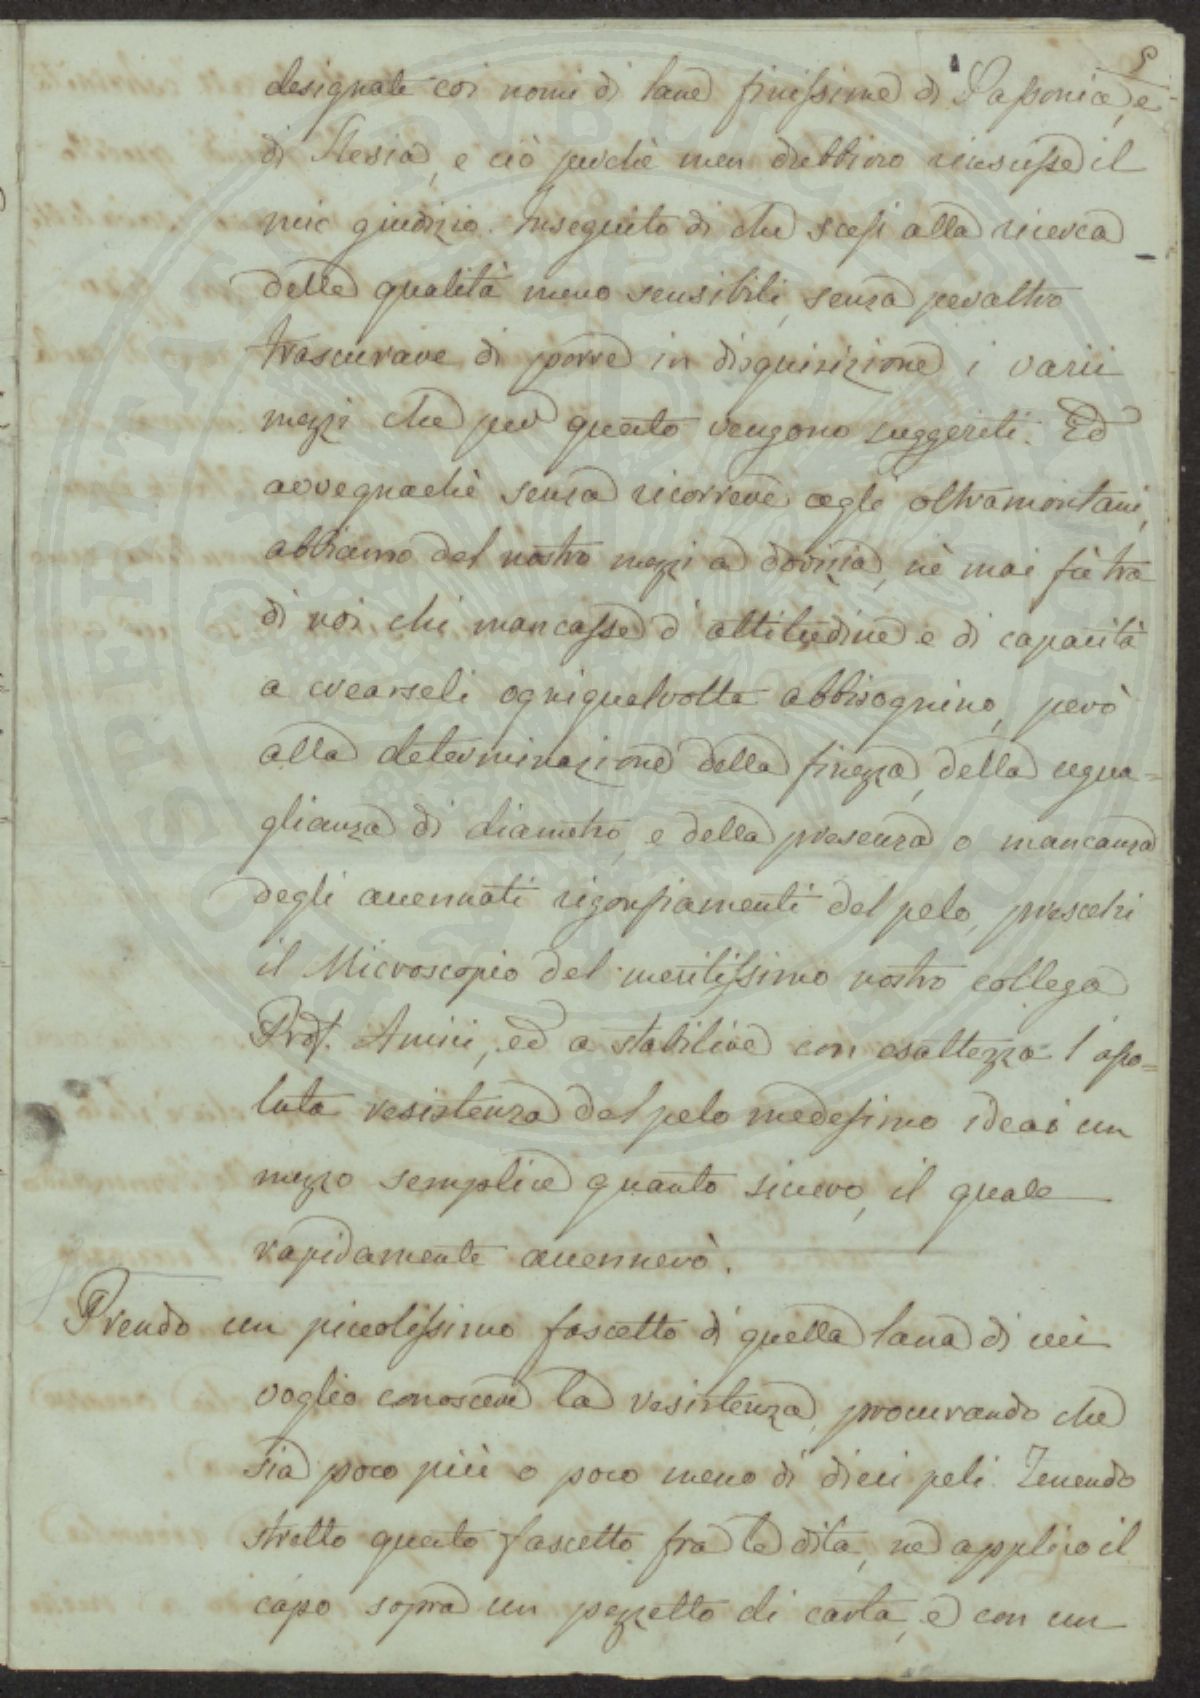 5
designate coi nomi di lane finissime di Sassonia, e
di Slesia, e ciò perchè men dubbioso riuscisse il
mio giudizio. Inseguito di che scesi alla ricerca
delle qualità meno sensibili, senza peraltro
trascurare di porre in disquisizione i varii
mezzi che per questo vengono suggeriti. Ed
avvegnachè senza ricorrere agli oltramontani,
abbiamo del nostro mezzi a dovizia, nè mai fù tra
di noi chi mancasse d'attitudine e di capacità
a crearseli ogniqualvolta abbisognino, però
alla determinazione della finezza, della ugua=
glianza di diametro, e della presenza o mancanza
degli accennati rigonfiamenti del pelo, prescelsi
il Microscopio del meritissimo nostro collega
Prof. Amici, ed a stabilire con esattezza l'asso=
luta resistenza del pelo medesimo ideai un
mezzo semplice quanto sicuro, il quale
rapidamente accennerò.
Prendo un piccolissimo fascetto di quella lana di cui
voglio conoscere la resistenza, procurando che
sia poco più o poco meno di dieci peli. Tenendo
stretto questo fascetto fra le dita, ne applico il
capo sopra un pezzetto di carta, e con un